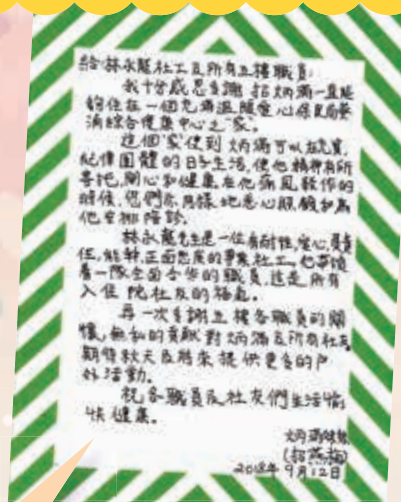 給林永龍社工及所有五樓職員:
我十分感恩多謝招炳滿一直能
夠住在一個充滿溫暖愛心保良局癸
消綜合復康中心之“家”。
這個“家”使到炳滿可以在充實,
紀律團體的日子生活,使他精神有所
寄托,開心和健康。在他痛風發作的
時候,你們亦同樣地悉心照顧和為
他安排陪診。
林永龍先生是一位有耐性,愛心,負責
任,能幹,正面態度的專業社工,他帶領
着一隊全面合作的職員,這是所有
入住院社友的福氣。
再一次多謝五樓各職員的關
懷,無私的貢獻對炳滿及所有社友
期待秋天及將來提供更多的戶
外活動。
祝各職員及社友們生活愉
快健康。
炳滿妹妹
(招燕梅)
2018年9月12日